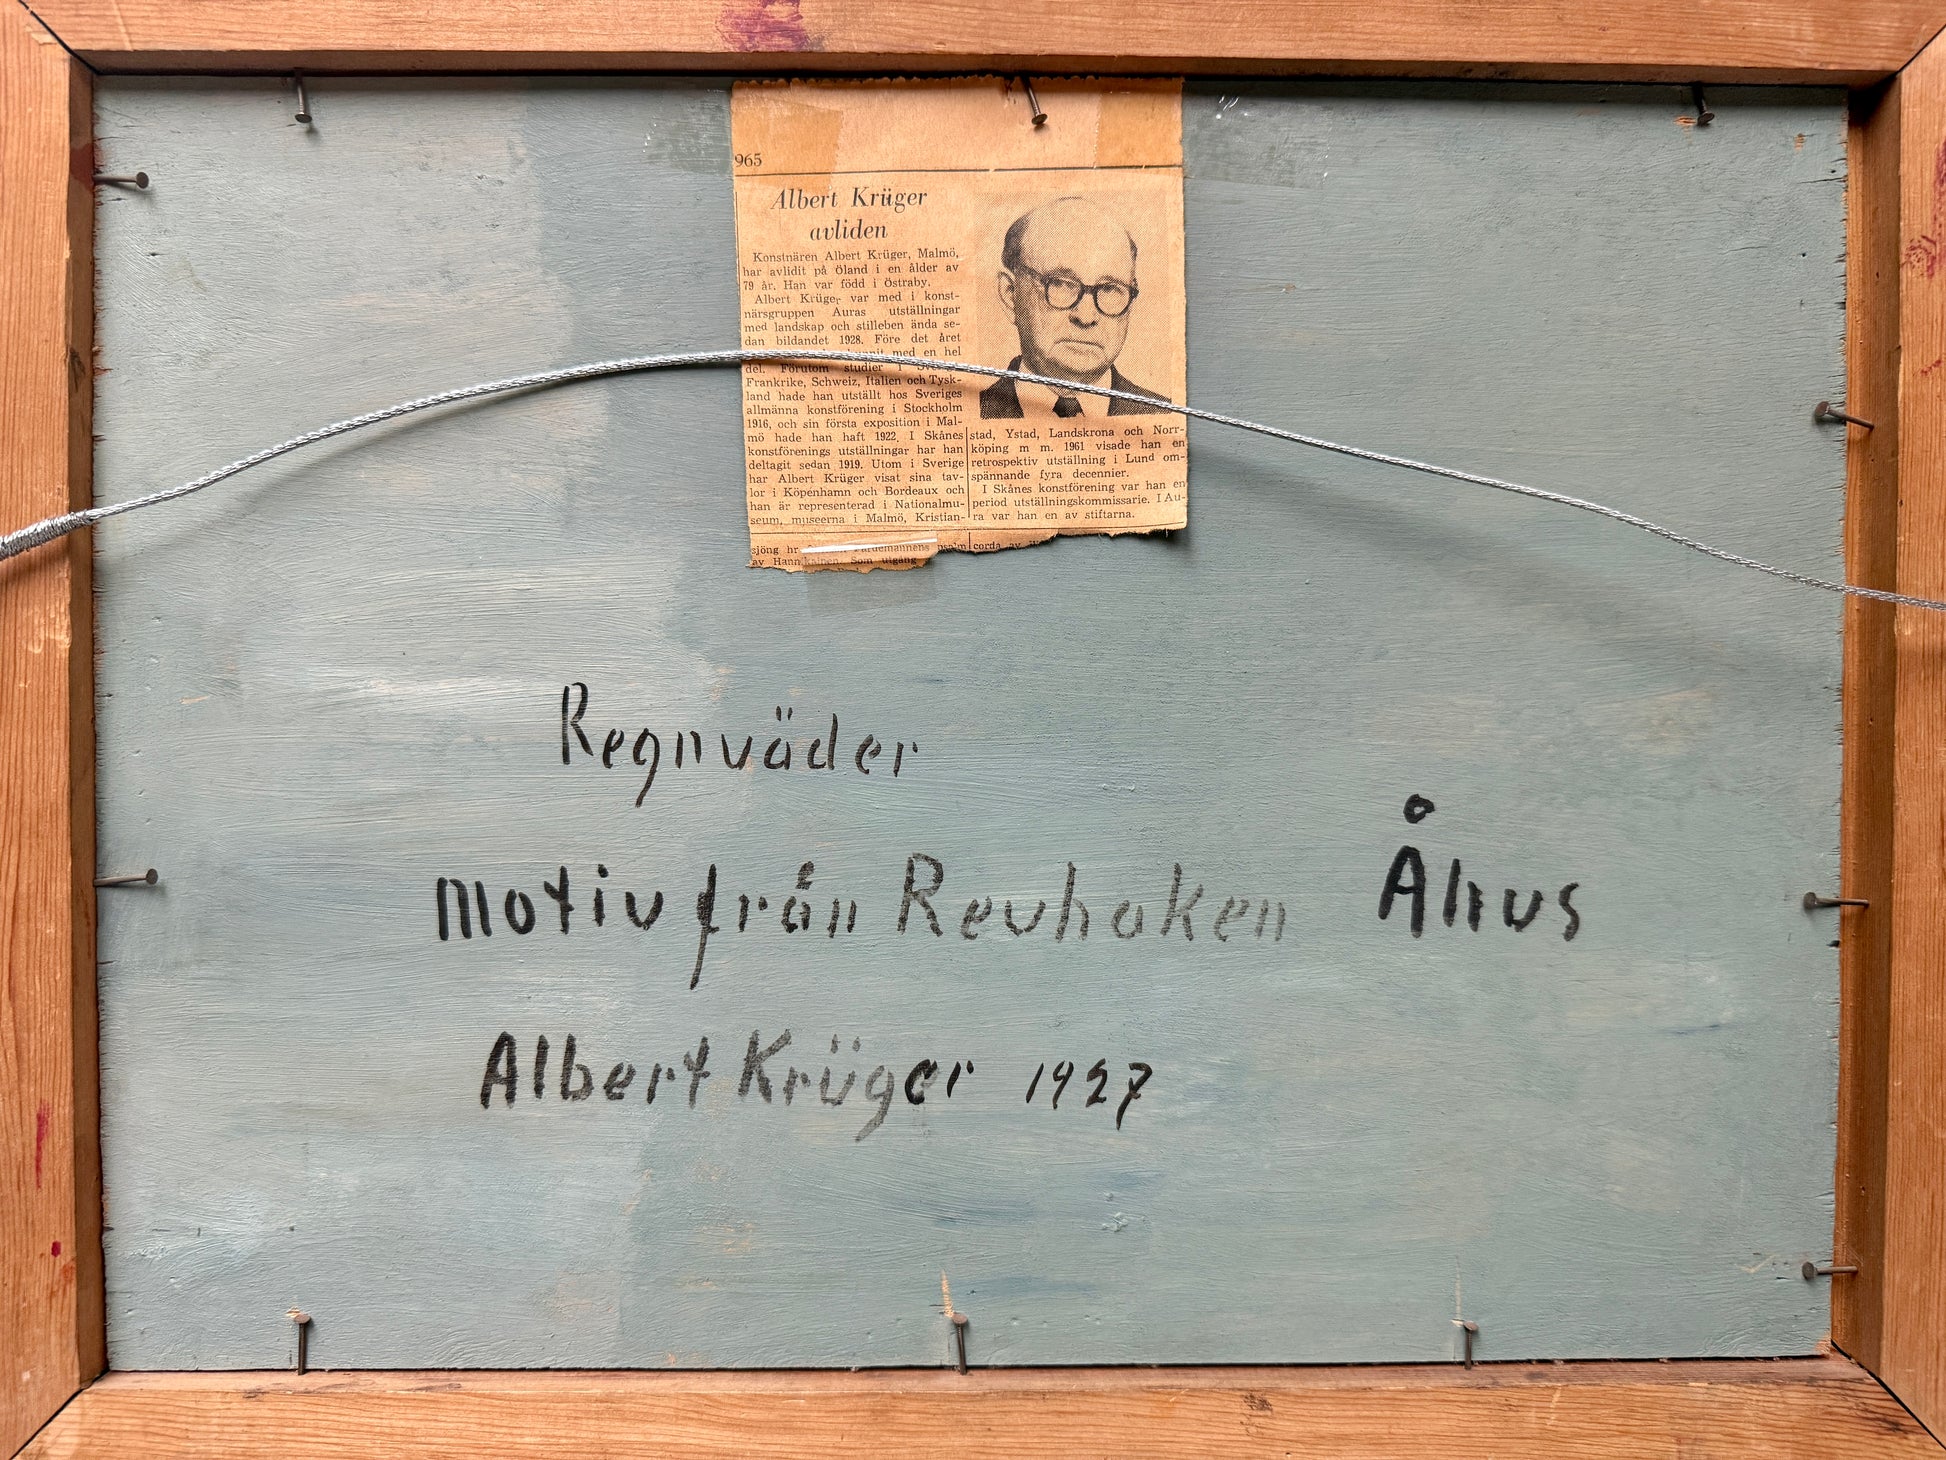 965
Albert Krüger
avliden
Konstnären Albert Krüger, Malmö,
har avlidit på Öland i en ålder av
79 år. Han var född i Östraby.
Albert Krüger var med i konst-
närsgruppen Auras utställningar
med landskap och stilleben ända se-
dan bildandet 1928. Före det året
med en hel
del. Förutom studier i
Frankrike, Schweiz, Italien och Tysk-
land hade han utställt hos Sveriges
allmänna konstförening i Stockholm
1916, och sin första exposition i Mal-
mö hade han haft 1922. I Skånes
konstförenings utställningar har han
deltagit sedan 1919. Utom i Sverige
har Albert Krüger visat sina tav-
lor i Köpenhamn och Bordeaux och
han är representerad i Nationalmu-
seum, museerna i Malmö, Kristian-
stad, Ystad, Landskrona och Norr-
köping m m. 1961 visade han en
retrospektiv utställning i Lund om-
spännande fyra decennier.
I Skånes konstförening var han en
period utställningskommissarie. I Au-
ra var han en av stiftarna.
sjöng hr psalm
av Som utgång
corda av
Regnväder
Motiv från Revhaken Åhus
Albert Krüger 1927